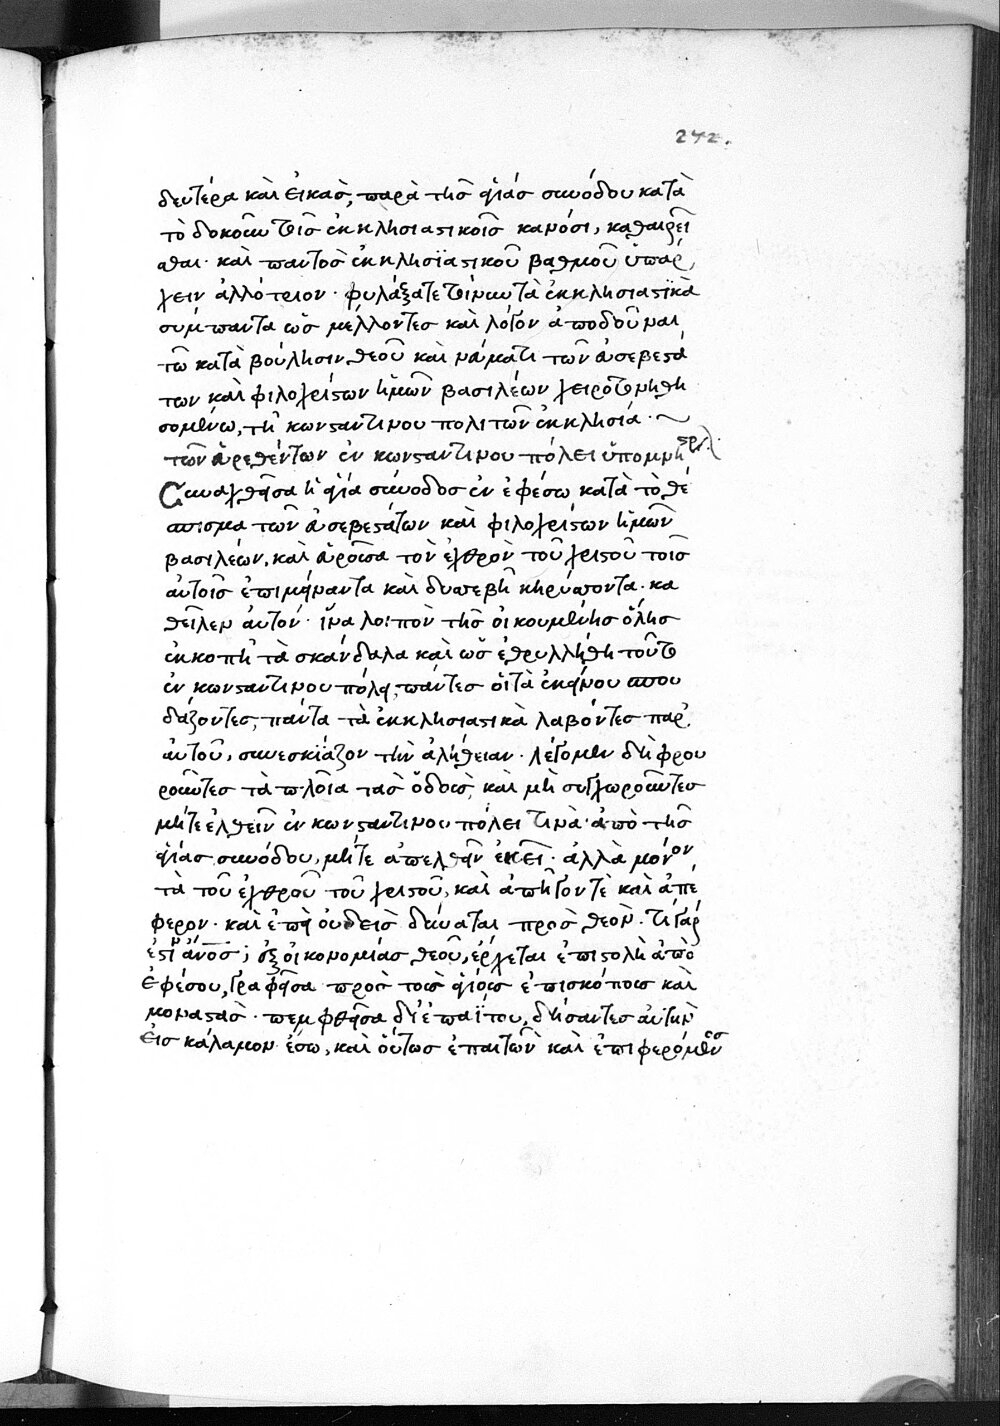 242.
δευτέρα καὶ εἰκὰς, παρὰ τῆς ἁγίας συνόδου κατὰ
τὸ δοκοῦν τοῖς ἐκκλησιαστικοῖς κανόσι, καθαιρεῖ
σθαι· καὶ παντὸς ἐκκλησϊαστικοῦ βαθμοῦ ὑπάρ
χειν ἀλλότριον· φυλάξατε τοίνυν τὰ ἐκκλησιαστϊκὰ
σύμπαντα ὡς μέλλοντες καὶ λόγον ἀποδοῦναι
τῶ κατὰ βούλησιν θεοῦ καὶ νεύματι τῶν εὐσεβεστά
των καὶ φιλοχρίστων ἡμῶν βασιλέων χειροτονηθη
σομένω, τῆ κωνσταντινουπολιτῶν ἐκκλησία·
τῶν εὑρεθέντων ἐν κωνσταντινουπόλει ὑπομνη
Συναχθεῖσα ἡ ἁγία σύνοδος ἐν ἐφέσω κατὰ τὸ θέ
σπισμα τῶν εὐσεβεστάτων καὶ φιλοχρίστων ἡμῶν
βασιλέων, καὶ εὑροῦσα τὸν ἐχθρὸν τοῦ χριστοῦ τοῖς
αὐτοῖς ἐπιμείναντα καὶ δυσσεβῆ κηρύσσοντα· κα
θεῖλεν αὐτόν· ἵνα λοιπὸν τῆς οἰκουμένης ὅλης
ἐκκοπῆ τὰ σκάνδαλα καὶ ὡς ἐθρυλλήθη τοῦτο
ἐν κωνσταντινουπόλει, πάντες οἱ τὰ ἐκείνου σπου
δάζοντες, πάντα τὰ ἐκκλησιαστικὰ λαβόντες παρ'
αὐτοῦ, συνεσκϊάζον τὴν ἀλήθειαν· λέγομεν δὴ φρου
ροῦντες τὰ πλοῖα τὰς ὅδοὺς, καὶ μὴ συγχωροῦντες
μήτε ἐλθεῖν ἐν κωνσταντινουπόλει τινὰ· ἀπὸ τῆς
ἁγίας συνόδου, μήτε ἀπελθεῖν ἐκεῖ· ἀλλὰ μόνον
τὰ τοῦ ἐχθροῦ τοῦ χριστοῦ, καὶ ἀπῆγόν τὲ καὶ ἀπέ
φερον· καὶ ἐπεὶ οὐδεὶς δύναται πρὸς θεόν· τί γάρ
ἐστὶν ἀνος; ἐξ οἰκονομίας θεοῦ, ἔρχεται ἐπιστολὴ ἀπὸ
ἐφέσου, γραφεῖσα πρὸς τοὺς ἁγίους ἐπισκόπους καὶ
μοναστὰς· πεμφθεῖσα δϊ' ἐπαΐτου, δήσαντες αὐτὴν
εἰς κάλαμον ἔσω, καὶ οὕτως ἐπαιτῶν καὶ ἐπιφερόμενος